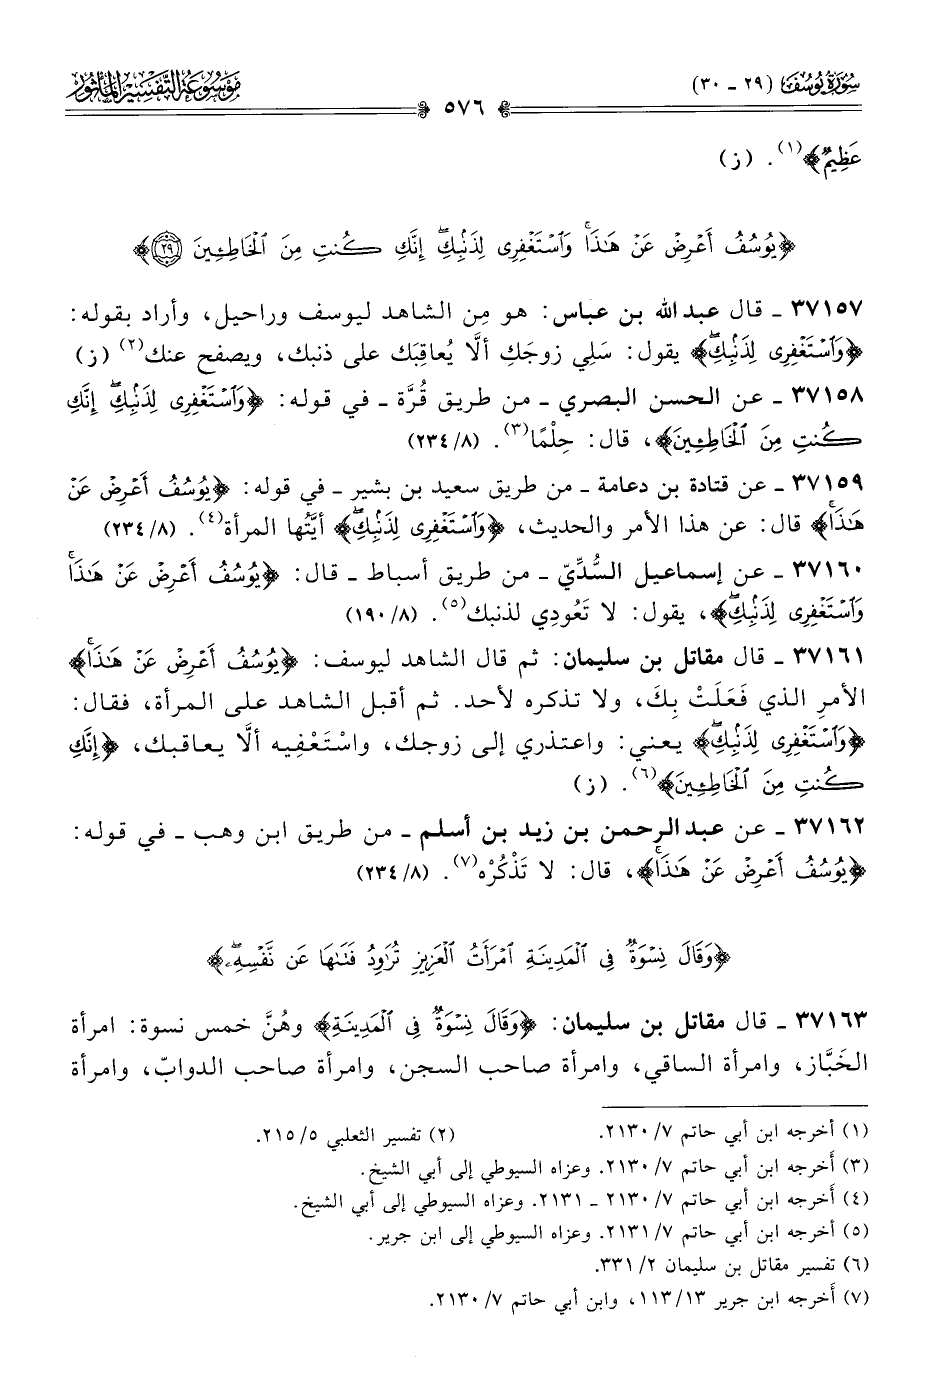 سُورَةُ يُوسُفَ (٢٩ - ٣٠)
٥٧٦
مَوْسُوعَةُ التَّفْسِيرِ المَأْثُور
عَظِيمٌ﴾(١). (ز)
﴿يُوسُفُ أَعْرِضْ عَنْ هَٰذَاۚ وَٱسْتَغْفِرِى لِذَنۢبِكِۖ إِنَّكِ كُنتِ مِنَ ٱلْخَاطِـِٔينَ ٢٩﴾
٣٧١٥٧ - قال عبد الله بن عباس: هو مِن الشاهد ليوسف وراحيل، وأراد بقوله:
﴿وَٱسْتَغْفِرِى لِذَنۢبِكِۖ﴾ يقول: سَلِي زوجَكِ ألَّا يُعاقِبَك على ذنبك، ويصفح عنك(٢) (ز)
٣٧١٥٨ - عن الحسن البصري - من طريق قُرَّة - في قوله: ﴿وَٱسْتَغْفِرِى لِذَنۢبِكِۖ إِنَّكِ
كُنتِ مِنَ ٱلْخَاطِـِٔينَ﴾، قال: حِلْمًا(٣). (٢٣٤/٨)
٣٧١٥٩ - عن قتادة بن دعامة - من طريق سعيد بن بشير - في قوله: ﴿يُوسُفُ أَعْرِضْ عَنْ
هَٰذَاۚ﴾ قال: عن هذا الأمر والحديث، ﴿وَٱسْتَغْفِرِى لِذَنۢبِكِۖ﴾ أيَّتُها المرأة(٤). (٢٣٤/٨)
٣٧١٦٠ - عن إسماعيل السُّدِّيّ - من طريق أسباط - قال: ﴿يُوسُفُ أَعْرِضْ عَنْ هَٰذَاۚ
وَٱسْتَغْفِرِى لِذَنۢبِكِۖ﴾، يقول: لا تَعُودِي لذنبك(٥). (١٩٠/٨)
٣٧١٦١ - قال مقاتل بن سليمان: ثم قال الشاهد ليوسف: ﴿يُوسُفُ أَعْرِضْ عَنْ هَٰذَاۚ﴾
الأمرِ الذي فَعَلَتْ بِكَ، ولا تذكره لأحد. ثم أقبل الشاهد على المرأة، فقال:
﴿وَٱسْتَغْفِرِى لِذَنۢبِكِۖ﴾ يعني: واعتذري إلى زوجك، واسْتَعْفِيه ألَّا يعاقبك، ﴿إِنَّكِ
كُنتِ مِنَ ٱلْخَاطِـِٔينَ﴾(٦). (ز)
٣٧١٦٢ - عن عبد الرحمن بن زيد بن أسلم - من طريق ابن وهب - في قوله:
﴿يُوسُفُ أَعْرِضْ عَنْ هَٰذَاۚ﴾، قال: لا تَذْكُرْه(٧). (٢٣٤/٨)
﴿وَقَالَ نِسْوَةٌ فِى ٱلْمَدِينَةِ ٱمْرَأَتُ ٱلْعَزِيزِ تُرَٰوِدُ فَتَىٰهَا عَن نَّفْسِهِۦۖ﴾
٣٧١٦٣ - قال مقاتل بن سليمان: ﴿وَقَالَ نِسْوَةٌ فِى ٱلْمَدِينَةِ﴾ وهُنَّ خمس نسوة: امرأة
الخَبَّاز، وامرأة الساقي، وامرأة صاحب السجن، وامرأة صاحب الدوابّ، وامرأة
(١) أخرجه ابن أبي حاتم ٧/ ٢١٣٠. (٢) تفسير الثعلبي ٥/ ٢١٥.
(٣) أخرجه ابن أبي حاتم ٧/ ٢١٣٠. وعزاه السيوطي إلى أبي الشيخ.
(٤) أخرجه ابن أبي حاتم ٧/ ٢١٣٠ - ٢١٣١. وعزاه السيوطي إلى أبي الشيخ.
(٥) أخرجه ابن أبي حاتم ٧/ ٢١٣١. وعزاه السيوطي إلى ابن جرير.
(٦) تفسير مقاتل بن سليمان ٢/ ٣٣١.
(٧) أخرجه ابن جرير ١٣/ ١١٣، وابن أبي حاتم ٧/ ٢١٣٠.